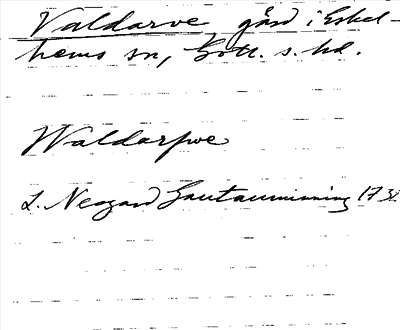 Valdarve gård i Eskel-
hems sn, Gotl. s. hd.
Waldarfwe
L. Neogard Gautauminning 173